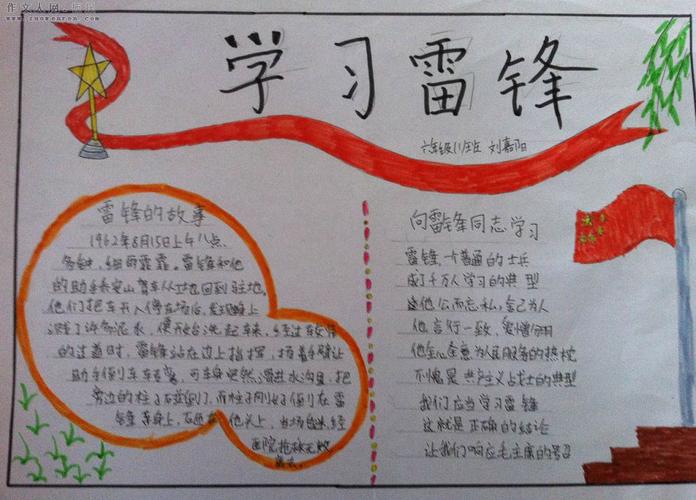 作文人网
www.zuowenren.com
学习雷锋
六年级(1)班 刘嘉阳
雷锋的故事
1962年8月15日上午八点
细雨霏霏。雷锋和他
的助手乔安山驾车从工地回到驻地。
他们把车开进停车场后,发现车上
溅了许多泥水,便开始洗起车来,经过
的过道时,雷锋站在边上指挥,扬着手臂让
助手倒车,可车突然滑进水沟里,把
旁边的柱子
雷锋头上,当场
医院抢救无效
向雷锋同志学习
雷锋,一个普通的士兵
成了千万人学习的典型
他公而忘私,舍己为人
他言行一致,爱憎分明
他全心全意为人民服务的热忱
不愧是共产主义战士的典型
我们应当学习雷锋
这就是正确的结论
让我们响应毛主席的号召